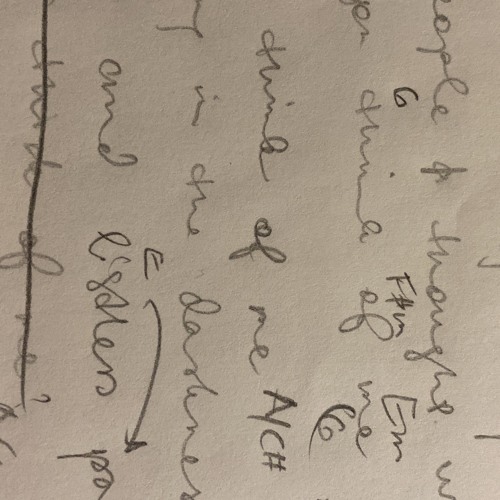 eople & thoughts. w
G F#m Em
you think of me
G
think of me A/C#
y in the darknes
E
and lightless pa
think of me?